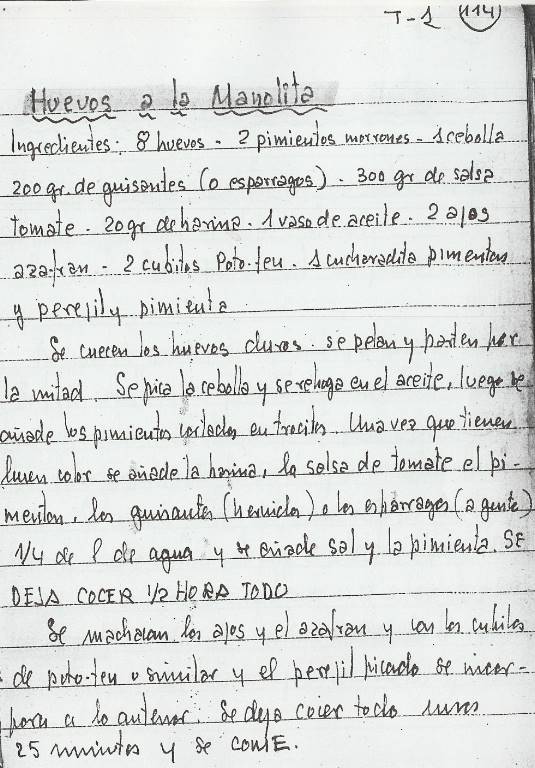 T-1 114
Huevos a la Manolita
Ingredientes: 8 huevos - 2 pimientos morrones - 1 cebolla
200 gr. de guisantes (o esparragos) - 300 gr de salsa
tomate - 20 gr de harina - 1 vaso de aceite - 2 ajos
azafran - 2 cubitos Poto-feu. 1 cucharadita pimenton
y perejil y pimienta
Se cuecen los huevos duros. se pelan y parten por
la mitad. Se pica la cebolla y se rehoga en el aceite, luego se
añade los pimientos cortados en trocitos. Una vez que tienen
buen color se añade la harina, la salsa de tomate el pi-
menton, los guisantes (hervidos) o los esparrages
1/4 de l de agua y se añade sal y la pimienta. SE
DEJA COCER 1/2 HORA TODO
Se machacan los ajos y el azafran y con los cubitos
de poto-feu o similar y el perejil picado se incor-
pora a lo anterior. Se deja cocer todo unos
25 minutos y se comE.